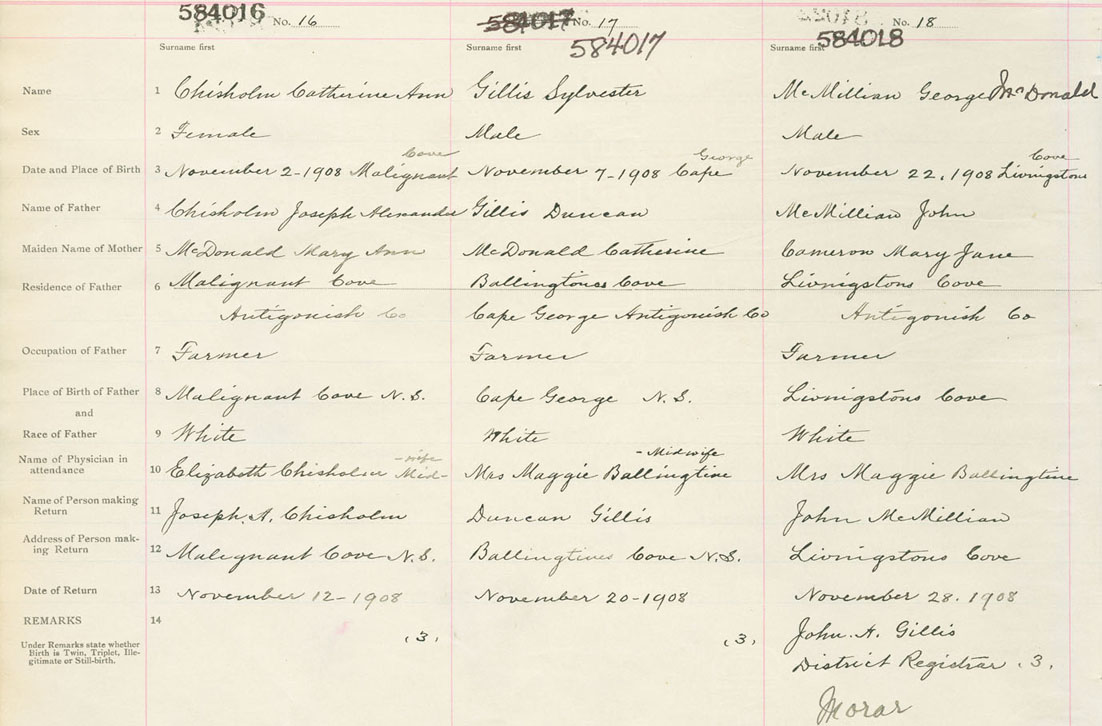 584016 No. 16 584017 No. 17 No. 18
Surname first Surname first 584017 Surname first 584018
Name 1 Chisholm Catherine Ann Gillis Sylvester McMillian George McDonald
Sex 2 Female Male Male
Cove George Cove
Date and Place of Birth 3 November 2-1908 Malignant November 7-1908 Cape November 22, 1908 Livingstons
Name of Father 4 Chisholm Joseph Alexander Gillis Duncan McMillian John
Maiden Name of Mother 5 McDonald Mary Ann McDonald Catherine Cameron Mary Jane
Residence of Father 6 Malignant Cove Ballingtones Cove Livingstons Cove
Antigonish Co Cape George Antigonish Co Antigonish Co
Occupation of Father 7 Farmer Farmer Farmer
Place of Birth of Father 8 Malignant Cove N.S. Cape George N.S. Livingstons Cove
and
Race of Father 9 White White White
Name of Physician in - wife - Midwife
attendance 10 Elizabeth Chisholm Mid- Mrs Maggie Ballingtine Mrs Maggie Ballingtine
Name of Person making
Return 11 Joseph. A. Chisholm Duncan Gillis John McMillian
Address of Person mak-
ing Return 12 Malegnant Cove N.S. Ballingtines Cove N.S. Livingstons Cove
Date of Return 13 November 12-1908 November 20-1908 November 28. 1908
REMARKS 14
Under Remarks state whether (3) (3) John. A. Gillis
Birth is Twin, Triplet, Ille-
gitimate or Still-birth. District Registrar .3.
Morar